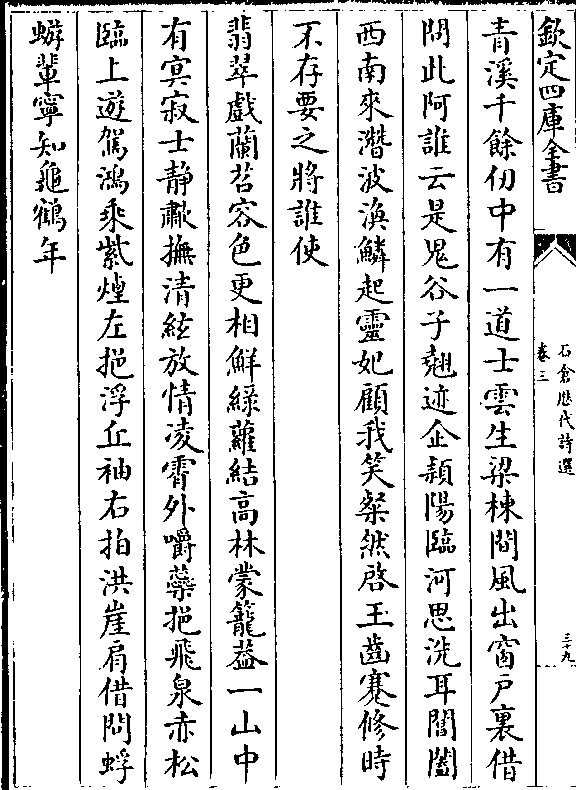 欽定四庫全書
石倉歴代詩選
卷三
三十九
青溪千餘仞中有一道士雲生梁棟間風出窗戶裏借
問此阿誰云是鬼谷子翹迹企頴陽臨河思洗耳閶闔
西南來潛波渙鱗起靈妃顧我笑粲然啓玉齒蹇修時
不存要之將誰使
翡翠戲蘭苕容色更相鮮緑蘿結高林蒙籠葢一山中
有㝠寂士静嘯撫清絃放情凌霄外嚼蘂挹飛泉赤松
臨上遊駕鴻乘紫煙左挹浮丘袖右拍洪崖肩借問蜉
蝣輩寧知龜鶴年